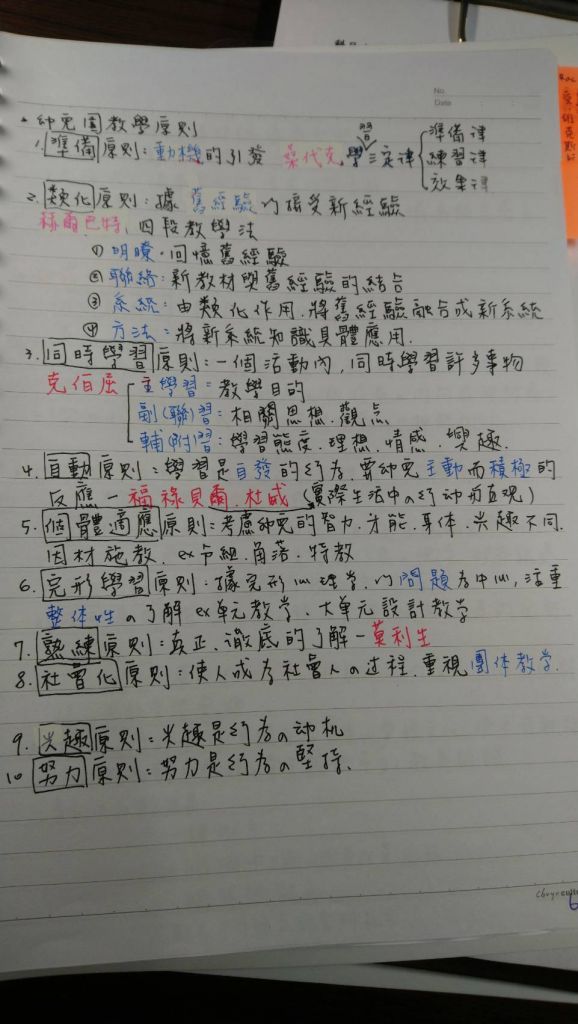 No.
Date
•幼兒園教學原則
1. 準備原則:動機的引發 桑代克 學習三定律 準備律
練習律
效果律
2. 類化原則:據舊經驗以接受新經驗
赫爾巴特, 四段教學法
① 明瞭:回憶舊經驗
② 聯絡:新教材與舊經驗的結合
③ 系統:由類化作用,將舊經驗融合成新系統
④ 方法:將新系統知識具體應用.
3. 同時學習原則:一個活動內,同時學習許多事物
克伯屈 主學習:教學目的
副(聯)習:相關思想.觀点
輔(附)習:學習態度.理想.情感.興趣.
4. 自動原則:學習是自發的行為.要幼兒主動而積極的
反應-福祿貝爾.杜威(實際生活中の行动
5. 個體適應原則:考慮幼兒的智力.才能.身体.兴趣不同.
因材施教. ex分組.角落.特教
6. 完形學習原則:據完形心理学,以問題為中心,注重
整体性の了解 ex單元教学、大单元設計教学
7. 熟練原則:真正.澈底的了解-莫利生
8. 社會化原則:使人成為社會人の过程.重視團体教学.
9. 兴趣原則:兴趣是行為の动机
10. 努力原則:努力是行為の堅持.